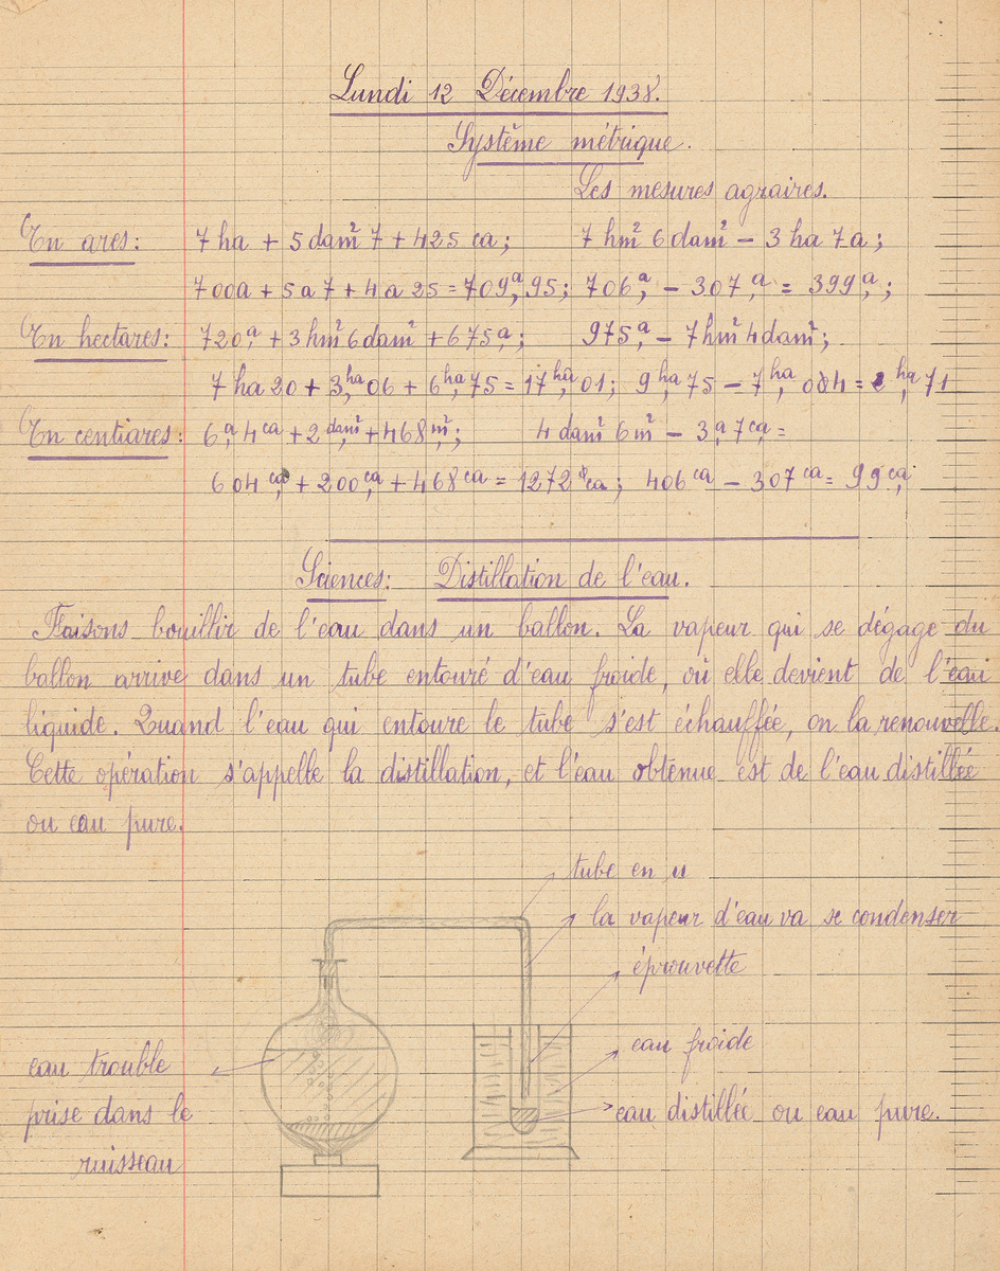 Lundi 12 Décembre 1938.
Système métrique.
Les mesures agraires.
En ares: 7 ha + 5 dam² 7 + 425 ca; 7 hm² 6 dam² – 3 ha 7a;
700a + 5a 7 + 4a 25 = 709,ᵃ95; 706,ᵃ – 307,ᵃ = 399,ᵃ;
En hectares: 720,ᵃ + 3 hm² 6 dam² + 675,ᵃ; 975,ᵃ – 7 hm² 4 dam²;
7 ha 20 + 3,ʰᵃ06 + 6,ʰᵃ75 = 17,ʰᵃ01; 9,ʰᵃ75 – 7,ʰᵃ04 = 2,ʰᵃ71
En centiares: 6,ᵃ4ᶜᵃ + 2,ᵈᵃᵐ² + 468,ᵐ²; 4 dam² 6 m² – 3,ᵃ7,ᶜᵃ =
604,ᶜᵃ + 200,ᶜᵃ + 468ᶜᵃ = 1272 ca; 406ᶜᵃ – 307ᶜᵃ = 99,ᶜᵃ
Sciences: Distillation de l'eau.
Faisons bouillir de l'eau dans un ballon. La vapeur qui se dégage du
ballon arrive dans un tube entouré d'eau froide, où elle devient de l'eau
liquide. Quand l'eau qui entoure le tube s'est échauffée, on la renouvelle.
Cette opération s'appelle la distillation, et l'eau obtenue est de l'eau distillée
ou eau pure.
tube en u
la vapeur d'eau va se condenser
éprouvette
eau froide
eau trouble
prise dans le
ruisseau
eau distillée ou eau pure.